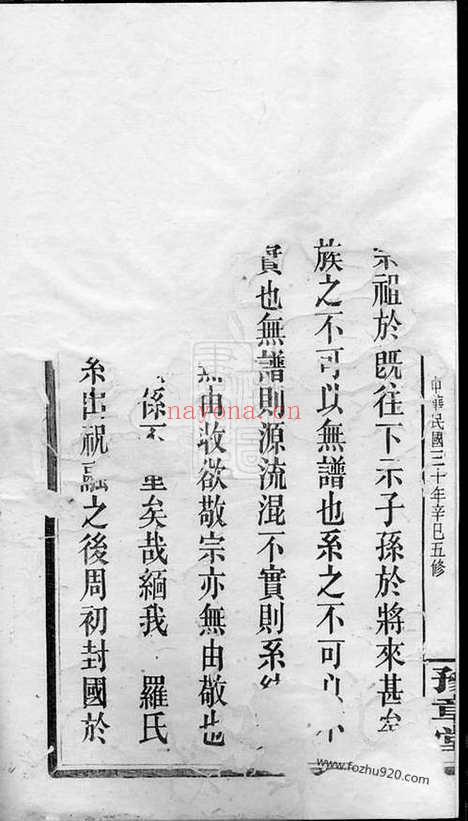 中華民國三十年辛巳五修
豫章堂
宗祖於既往下示子孫於將來甚矣
族之不可以無譜也系之不可以不
實也無譜則源流混不實則系
無由收欲敬宗亦無由敬也
係不 重矣哉緬我 羅氏
系出祝融之後周初封國於
nayona.cn
www.fozhu920.com